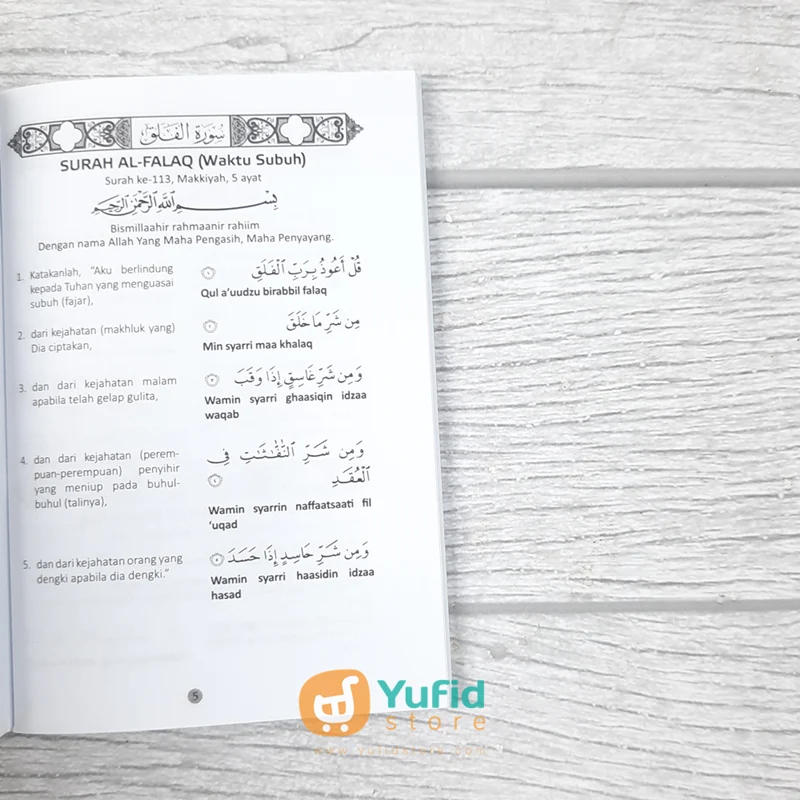 سُورَةُ الْفَلَقِ
SURAH AL-FALAQ (Waktu Subuh)
Surah ke-113, Makkiyah, 5 ayat
بِسْمِ اللَّهِ الرَّحْمَٰنِ الرَّحِيمِ
Bismillaahir rahmaanir rahiim
Dengan nama Allah Yang Maha Pengasih, Maha Penyayang.
1. Katakanlah, “Aku berlindung
kepada Tuhan yang menguasai
subuh (fajar),
قُلْ أَعُوذُ بِرَبِّ الْفَلَقِ ١
Qul a’uudzu birabbil falaq
2. dari kejahatan (makhluk yang)
Dia ciptakan,
مِن شَرِّ مَا خَلَقَ ٢
Min syarri maa khalaq
3. dan dari kejahatan malam
apabila telah gelap gulita,
وَمِن شَرِّ غَاسِقٍ إِذَا وَقَبَ ٣
Wamin syarri ghaasiqin idzaa
waqab
4. dan dari kejahatan (perem-
puan-perempuan) penyihir
yang meniup pada buhul-
buhul (talinya),
وَمِن شَرِّ النَّفَّٰثَٰتِ فِي
الْعُقَدِ ٤
Wamin syarrin naffaatsaati fil
‘uqad
5. dan dari kejahatan orang yang
dengki apabila dia dengki.”
وَمِن شَرِّ حَاسِدٍ إِذَا حَسَدَ ٥
Wamin syarri haasidin idzaa
hasad
5
Yufid
store
www.yufidstore.com